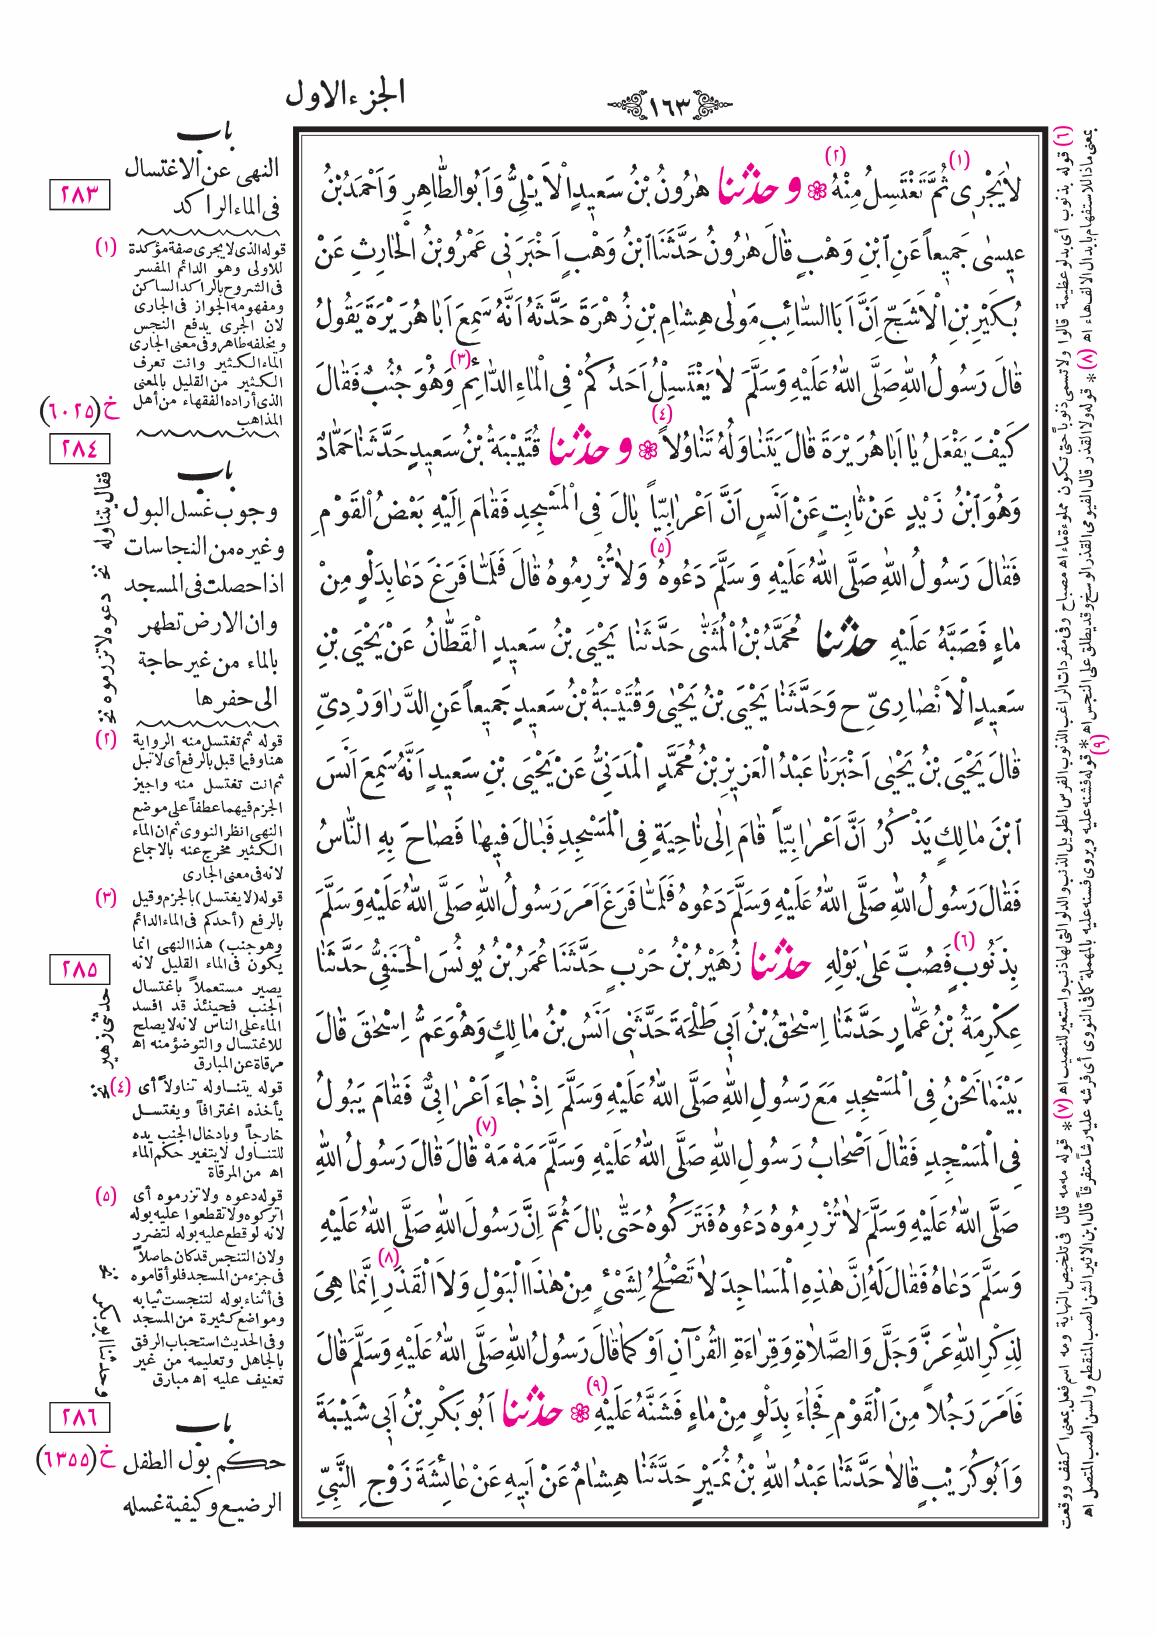 ١٦٣
الجزء الاول
لَا يَجْرِى (١) ثُمَّ تَغْتَسِلُ مِنْهُ (٢) وحدثنا هٰرُونُ بْنُ سَعيدٍ الْاَيْلِىُّ وَاَبُو الطَّاهِرِ وَاَحْمَدُ بْنُ
عيسٰى جَميعاً عَنِ ابْنِ وَهْبٍ قَالَ هٰرُونُ حَدَّثَنَا ابْنُ وَهْبٍ اَخْبَرَنى عَمْرُو بْنُ الْحَارِثِ عَنْ
بُكَيْرِ بْنِ الْاَشَجِّ اِنَّ اَبَا السَّائِبِ مَوْلٰى هِشَامِ بْنِ زُهْرَةَ حَدَّثَهُ اَنَّهُ سَمِعَ اَبَا هُرَيْرَةَ يَقُولُ
قَالَ رَسُولُ اللهِ صَلَّى اللهُ عَلَيْهِ وَسَلَّمَ لَا يَغْتَسِلْ اَحَدُكُمْ فِى الْمَاءِ الدَّائِمِ (٣) وَهُوَ جُنُبٌ فَقَالَ
كَيْفَ يَفْعَلُ يَا اَبَا هُرَيْرَةَ قَالَ يَتَنَاوَلُهُ تَنَاوُلاً (٤) وحدثنا قُتَيْبَةُ بْنُ سَعيدٍ حَدَّثَنَا حَمَّادٌ
وَهُوَ ابْنُ زَيْدٍ عَنْ ثَابِتٍ عَنْ اَنَسٍ اَنَّ اَعْرَابِيّاً بَالَ فِى الْمَسْجِدِ فَقَامَ اِلَيْهِ بَعْضُ الْقَوْمِ
فَقَالَ رَسُولُ اللهِ صَلَّى اللهُ عَلَيْهِ وَسَلَّمَ دَعُوهُ (٥) وَلَا تُزْرِمُوهُ قَالَ فَلَمَّا فَرَغَ دَعَا بِدَلْوٍ مِنْ
مَاءٍ فَصَبَّهُ عَلَيْهِ حدثنا مُحَمَّدُ بْنُ الْمُثَنّٰى حَدَّثَنَا يَحْيَى بْنُ سَعيدٍ الْقَطَّانُ عَنْ يَحْيَى بْنِ
سَعيدٍ الْاَنْصَارِىِّ ح وَحَدَّثَنَا يَحْيَى بْنُ يَحْيٰى وَقُتَيْبَةُ بْنُ سَعيدٍ جَميعاً عَنِ الدَّرَاوَرْدِىِّ
قَالَ يَحْيَى بْنُ يَحْيٰى اَخْبَرَنَا عَبْدُ الْعَزيزِ بْنُ مُحَمَّدٍ الْمَدَنِىُّ عَنْ يَحْيَى بْنِ سَعيدٍ اَنَّهُ سَمِعَ اَنَسَ
ابْنَ مَالِكٍ يَذْكُرُ اَنَّ اَعْرَابِيّاً قَامَ اِلٰى نَاحِيَةٍ فِى الْمَسْجِدِ فَبَالَ فيهَا فَصَاحَ بِهِ النَّاسُ
فَقَالَ رَسُولُ اللهِ صَلَّى اللهُ عَلَيْهِ وَسَلَّمَ دَعُوهُ فَلَمَّا فَرَغَ اَمَرَ رَسُولُ اللهِ صَلَّى اللهُ عَلَيْهِ وَسَلَّمَ
بِذَنُوبٍ (٦) فَصُبَّ عَلٰى بَوْلِهِ حدثنا زُهَيْرُ بْنُ حَرْبٍ حَدَّثَنَا عُمَرُ بْنُ يُونُسَ الْحَنَفِىُّ حَدَّثَنَا
عِكْرِمَةُ بْنُ عَمَّارٍ حَدَّثَنَا اِسْحٰقُ بْنُ اَبى طَلْحَةَ حَدَّثَنى اَنَسُ بْنُ مَالِكٍ وَهُوَ عَمُّ اِسْحٰقَ قَالَ
بَيْنَمَا نَحْنُ فِى الْمَسْجِدِ مَعَ رَسُولِ اللهِ صَلَّى اللهُ عَلَيْهِ وَسَلَّمَ اِذْ جَاءَ اَعْرَابِىٌّ فَقَامَ يَبُولُ
فِى الْمَسْجِدِ فَقَالَ اَصْحَابُ رَسُولِ اللهِ صَلَّى اللهُ عَلَيْهِ وَسَلَّمَ مَهْ مَهْ (٧) قَالَ قَالَ رَسُولُ اللهِ
صَلَّى اللهُ عَلَيْهِ وَسَلَّمَ لَا تُزْرِمُوهُ دَعُوهُ فَتَرَكُوهُ حَتّٰى بَالَ ثُمَّ اِنَّ رَسُولَ اللهِ صَلَّى اللهُ عَلَيْهِ
وَسَلَّمَ دَعَاهُ فَقَالَ لَهُ اِنَّ هٰذِهِ الْمَسَاجِدَ لَا تَصْلُحُ لِشَىْءٍ مِنْ هٰذَا الْبَوْلِ وَلَا الْقَذَرِ (٨) اِنَّمَا هِىَ
لِذِكْرِ اللهِ عَزَّ وَجَلَّ وَالصَّلَاةِ وَقِرَاءَةِ الْقُرْآنِ اَوْ كَمَا قَالَ رَسُولُ اللهِ صَلَّى اللهُ عَلَيْهِ وَسَلَّمَ قَالَ
فَاَمَرَ رَجُلاً مِنَ الْقَوْمِ فَجَاءَ بِدَلْوٍ مِنْ مَاءٍ فَشَنَّهُ عَلَيْهِ (٩) حدثنا اَبُو بَكْرِ بْنُ اَبى شَيْبَةَ
وَاَبُو كُرَيْبٍ قَالَا حَدَّثَنَا عَبْدُ اللهِ بْنُ نُمَيْرٍ حَدَّثَنَا هِشَامٌ عَنْ اَبيهِ عَنْ عَائِشَةَ زَوْجِ النَّبِىِّ
باب
النهى عن الاغتسال
فى الماء الراكد
٢٨٣
(١) قوله الذى لا يجرى صفة مؤكدة
للاولى وهو الدائم المفسر
فى الشروح بالراكد الساكن
ومفهومه الجواز فى الجارى
لان الجرى يدفع النجس
ويخلفه طاهر وفى معنى الجارى
الماء الكثير وانت تعرف
الكثير من القليل بالمعنى
الذى أراده الفقهاء من أهل
المذاهب
خ (٦٠٢٥)
٢٨٤
باب
وجوب غسل البول
وغيره من النجاسات
اذا حصلت فى المسجد
وان الارض تطهر
بالماء من غير حاجة
الى حفرها
فقال يتناوله نخ دعوه لا تزرموه نخ
(٢) قوله ثم تغتسل منه الرواية
هنا وفيما قبل بالرفع أى لا تبل
ثم انت تغتسل منه واجيز
الجزم فيهما عطفاً على موضع
النهى انظر النووى ثم ان الماء
الكثير مخرج عنه بالاجماع
لانه فى معنى الجارى
(٣) قوله (لا يغتسل) بالجزم وقيل
بالرفع (أحدكم فى الماء الدائم
وهو جنب) هذا النهى انما
يكون فى الماء القليل لانه
يصير مستعملاً باغتسال
الجنب فحينئذ قد افسد
الماء على الناس لانه لا يصلح
للاغتسال والتوضؤ منه اه
مرقاة عن المبارق
٢٨٥
حدثنى زهير نخ
(٤) قوله يتناوله تناولاً أى
يأخذه اغترافاً ويغتسل
خارجاً وبادخال الجنب يده
للتناول لا يتغير حكم الماء
اه من المرقاة
(٥) قوله دعوه ولا تزرموه أى
اتركوه ولا تقطعوا عليه بوله
لانه لو قطع عليه بوله لتضرر
ولان التنجس قد كان حاصلاً
فى جزء من المسجد فلو أقاموه
فى أثناء بوله لتنجست ثيابه
ومواضع كثيرة من المسجد
وفى الحديث استحباب الرفق
بالجاهل وتعليمه من غير
تعنيف عليه اه مبارق
وحدثنا ابو بكر نخ
٢٨٦
باب
خ (٦٣٥٥)
حكم بول الطفل
الرضيع وكيفية غسله
(٦) قوله بذنوب أى بدلو عظيمة قالوا ولا تسمى ذنوباً حتى تكون مملوءة ماء اه مصباح وفى مفردات الراغب الذنوب الفرس الطويل الذنب والدلو التى لها ذنب واستعير للنصيب اه (٧) * قوله مه مه قال فى تلخيص النهاية ومه اسم فعل بمعنى اكفف ووقعت
بمعنى ماذا للاستفهام بابدال الالف هاء اه (٨) * قوله ولا القذر قال الفيومى القذر الوسخ وقد يطلق على النجس اه (٩) * قوله فشنه عليه ويروى فسنه عليه بالمهملة كما فى النووى أى فرشه عليه رشاً متفرقاً قال ابن الاثير الشن الصب المنقطع والسن الصب المتصل اه